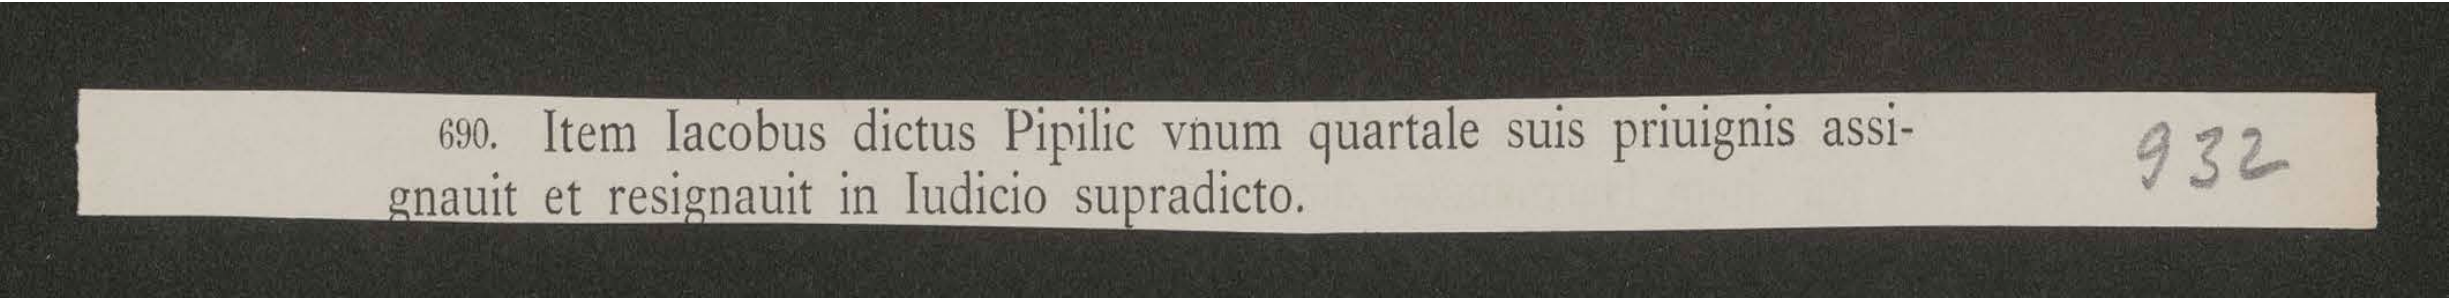 690. Item Iacobus dictus Pipilic vnum quartale suis priuignis assi-
gnauit et resignauit in Iudicio supradicto.
932